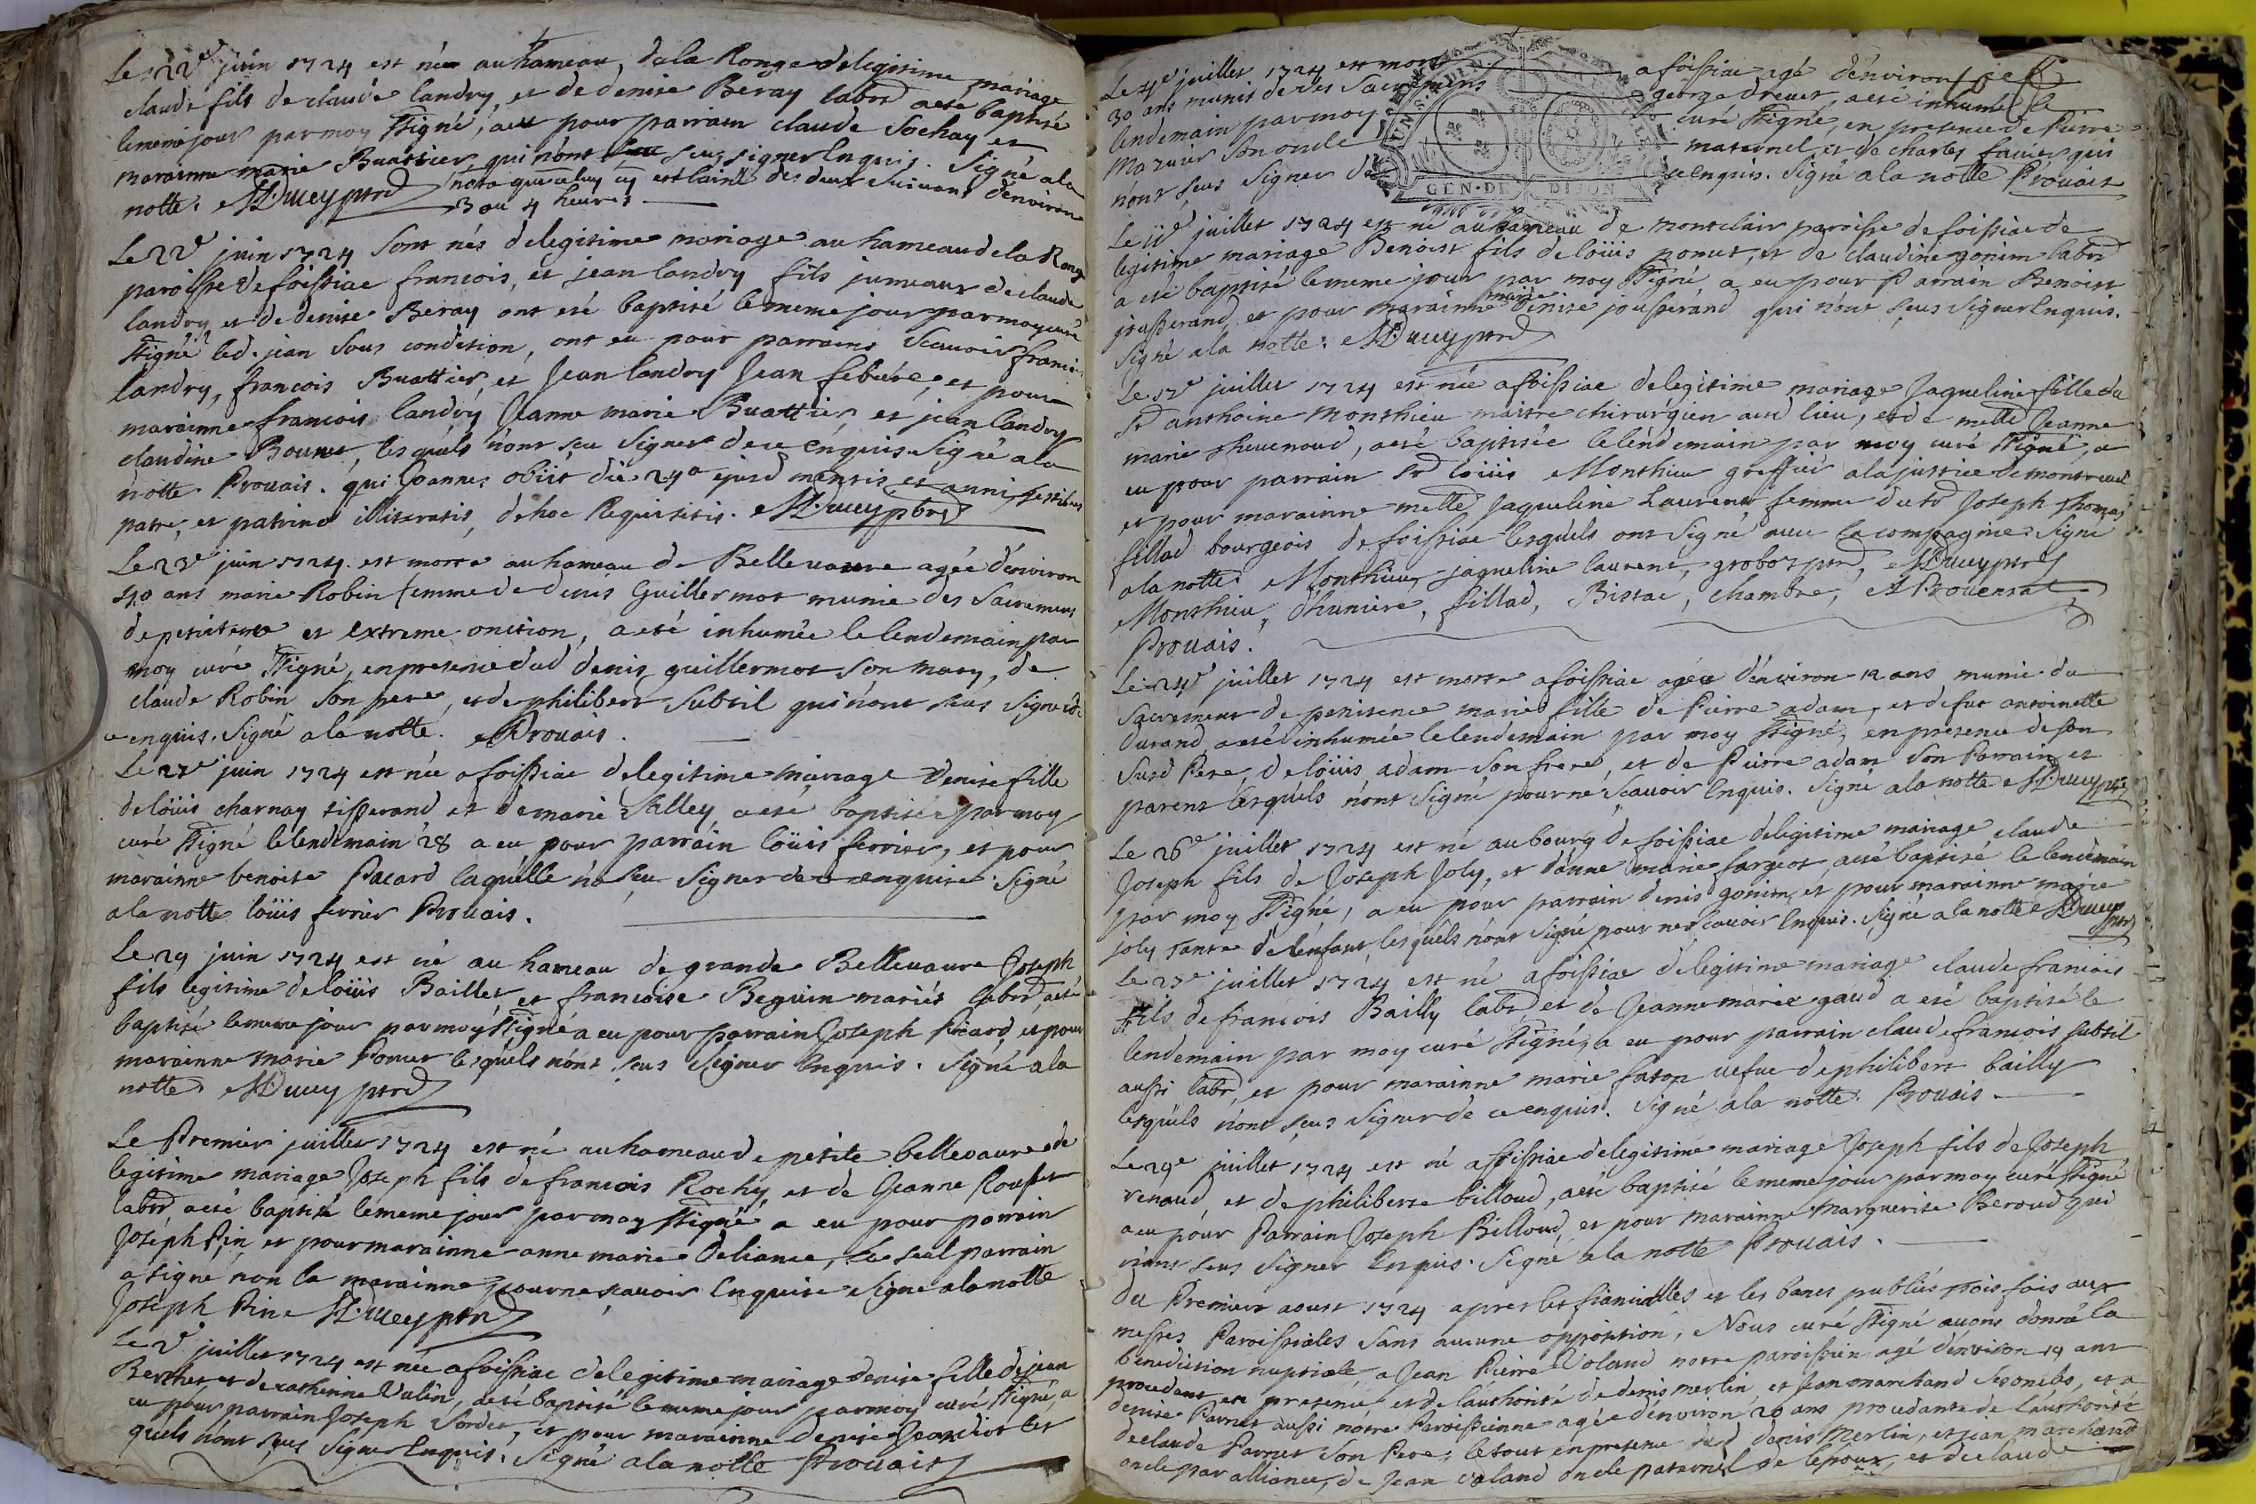 Le 22e juin 1724 est né au hameau de la Ronge de legitime mariage
claude fils de claude landry, et de denise Beray labor a eté baptisé
le meme jour par moy ssigné, a eu pour parrain claude Sochay et
marainne marie Buattier qui n'ont sçus signer Enquis. Signé a la
notte. Ducuy ptre nota que celuy cy est l'ainé des deux suivans d'environ
3 ou 4 heures
Le 22e juin 1724 sont nés de legitime mariage au hameau de la Ronge
paroisse de foissiac francois, et jean landry fils jumeaux de claude
landry et de denise Beray ont eté baptisé le meme jour par moy curé
ssigné led. jean sous condition, ont eu pour parrains scauoir francois
landry, francois Buattier, et Jean landry Jean febure, et pour
marainne francois landry Jeanne marie Buattier et jean landry
claudine Bouuet, lesquels n'ont sçu signer de ce enquis Signé a la
notte Prouais. qui Joannes obiit die 24a ejusd mensis et anni, testibus
patre, et patrino illiteratis, de hoc Requisitis. Ducuy pbre
Le 23e juin 1724 est morte au hameau de Belleuaure agée d'environ
40 ans marie Robin femme de denis Guillermot munie des Sacremens
de penitence et extreme onction, a eté inhumée le lendemain par
moy curé ssigné, en presence dud denis guillermot son mary, de
claude Robin son pere, et de philibert Subtil qui n'ont sçus signer de
ce enquis. Signé a la notte. Prouais.
Le 27e juin 1724 est née a foissiac de legitime mariage denise fille
de loüis charnay tisserand et de marie Valley a eté baptisée par moy
curé ssigné le lendemain 28 a eu pour parrain loüis ferrier, et pour
marainne benoite Pacard laquelle n'a sçeu signer de ce enquise. Signé
a la notte loüis ferrier Prouais.
Le 29 juin 1724 est né au hameau de grande Belleuaure Joseph
fils legitime de loüis Baillet et francoise Beguin mariés labor a eté
baptisé le meme jour par moy ssigné a eu pour parrain Joseph Picard, et pour
marainne marie Ponnet lesquels n'ont sçus signer Enquis. Signé a la
notte. Ducuy ptre
Le Premier juillet 1724 est né au hameau de petite belleuaure de
legitime mariage Joseph fils de francois Rochy, et de Jeanne Rousset
labor a eté baptisé le meme jour par moy ssigné a eu pour parrain
Joseph Pin, et pour marainne anne marie Deliance, le seul parrain
a signé non la marainne pour ne scauoir Enquise Signé a la notte
Joseph Pin Ducuy ptre
Le 2e juillet 1724 est née a foissiac de legitime mariage denise fille de jean
Berthet et de catherinne Vulin, a eté baptisé le meme jour par moy curé ssigné, a
eu pour parrain Joseph Sordet, et pour marainne denise Jeandiot les
quels n'ont sçus signer Enquis. Signé a la notte Prouais
Le 4e juillet 1724 est mort a foissiac agé d'environ
30 ans munis de ses Sacremens george dreuet, a eté inhumé le
lendemain par moy curé ssigné, en presence de Pierre
Mazuir son oncle maternel, et de charles qui
n'ont sçus signer de ce enquis. Signé a la notte Prouais
GEN. DE DIJON
Le 11e juillet 1724 est né au hameau de montclair paroisse de foissiac de
legitime mariage Benoist fils de loüis ponnet, et de claudine gonin labor
a eté baptisé le meme jour par moy ssigné, a eu pour Parrain Benoist
josserand et pour marainne marie denise josserand qui n'ont sçus signer Enquis.
Signé a la notte. Ducuy ptre
Le 12e juillet 1724 est née a foissiac de legitime mariage Jaqueline fille du
sr anthoine Monthieu maitre chirurgien aud lieu, et de melle Jeanne
marie theuenoud, a eté baptisée le lendemain par moy curé ssigné, a
eu pour parrain sr loüis Monthieu greffier a la justice de montreuel
et pour marainne melle Jaqueline Laurent femme du sr Joseph thomas
fillod bourgeois de foissiac lesquels ont signé auec la compagnie. Signé
a la notte. Monthieu, jaqueline laurent, groboz ptre, Ducuy ptre
Monthieu, d'huniere, fillod, Bistac, chambre, Prouensal,
Prouais.
Le 24e juillet 1724 est morte a foissiac agée d'environ 12 ans munie du
Sacrement de penitence marie fille de Pierre adam, et de fut antoinette
durand a eté inhumée le lendemain par moy ssigné, en presence de son
susd Pere, de loüis adam son frere, et de Pierre adam son Parrain et
parent lesquels n'ont signé pour ne scauoir Enquis. Signé a la notte Ducuy ptre
Le 26e juillet 1724 est né au bourg de foissiac de legitime mariage claude
Joseph fils de Joseph Joly, et d'anne marie fargeot, a eté baptisé le lendemain
par moy ssigné, a eu pour parrain denis gonin, et pour marainne marie
joly tante de l'enfant, lesquels n'ont signé pour ne scauoir Enquis. Signé a la notte Ducuy ptre
Le 27e juillet 1724 est né a foissiac de legitime mariage claude francois
fils de francois Bailly labor, et de Jeanne marie gaud a eté baptisé le
lendemain par moy curé ssigné, a eu pour parrain claude francois subtil
aussi labor, et pour marainne marie faton uefue de philibert bailly
lesquels n'ont sçus signer de ce enquis. Signé a la notte. Prouais.
Le 29e juillet 1724 est né a foissiac de legitime mariage Joseph fils de Joseph
renaud, et de philiberte billoud, a eté baptisé le meme jour par moy curé ssigné
a eu pour Parrain Joseph Billoud, et pour marainne marguerite Beroud qui
n'ont sçus signer Enquis. Signé a la notte Prouais.
Du Premier aoust 1724 apres les fiancialles et les bancs publiés trois fois aux
messes Paroissiales sans aucune opposition, Nous curé ssigné auons donné la
benediction nuptiale a Jean Pierre Voland notre paroissien agé d'environ 19 ans
procedant en presence et de l'authorité de denis merlin, et jean marchand et a
denise Parnet aussi notre Paroissienne agée d'environ 20 ans procedante de l'authorité
de claude Parnet son Pere, le tout en presence dud denis Merlin, et jean marchand
oncle par alliance, de Jean Voland oncle paternel de l'epoux, et de claude